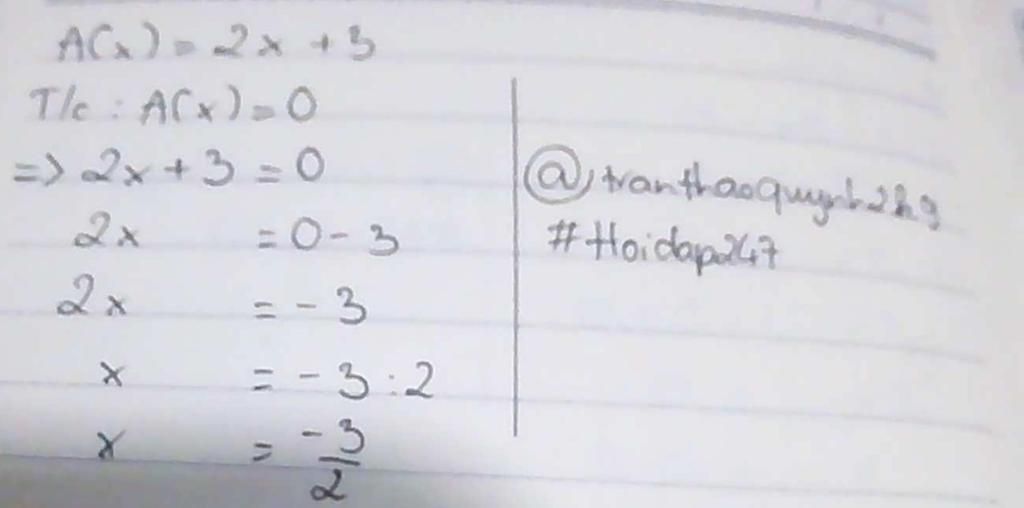 A(x) = 2x + 3
T/c : A(x) = 0
=> 2x + 3 = 0
2x = 0 - 3
2x = - 3
x = - 3 : 2
x = -3/2
@tranthaoquynh2k9
#Hoidap247